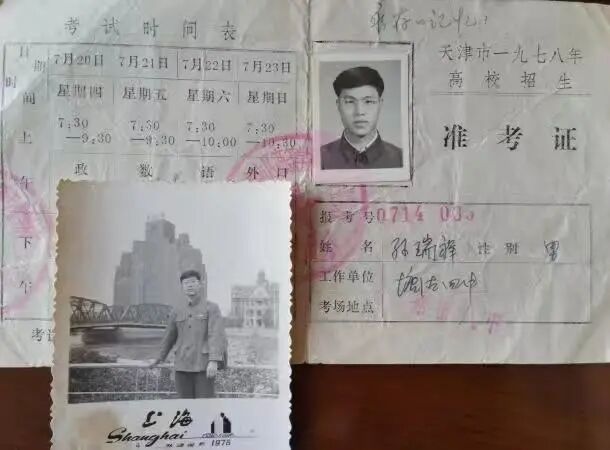 考试时间表
日期 7月20日 7月21日 7月22日 7月23日
时间 星期四 星期五 星期六 星期日
上午 7:30—9:30 7:30—9:30 7:30—10:00 7:30—10:30
政 数 语 外口
下午
考
天津市一九七八年
高校招生
准考证
报考号 0714 035
姓名 孙瑞祥 性别 男
工作单位
考场地点
上海
Shanghai
1978